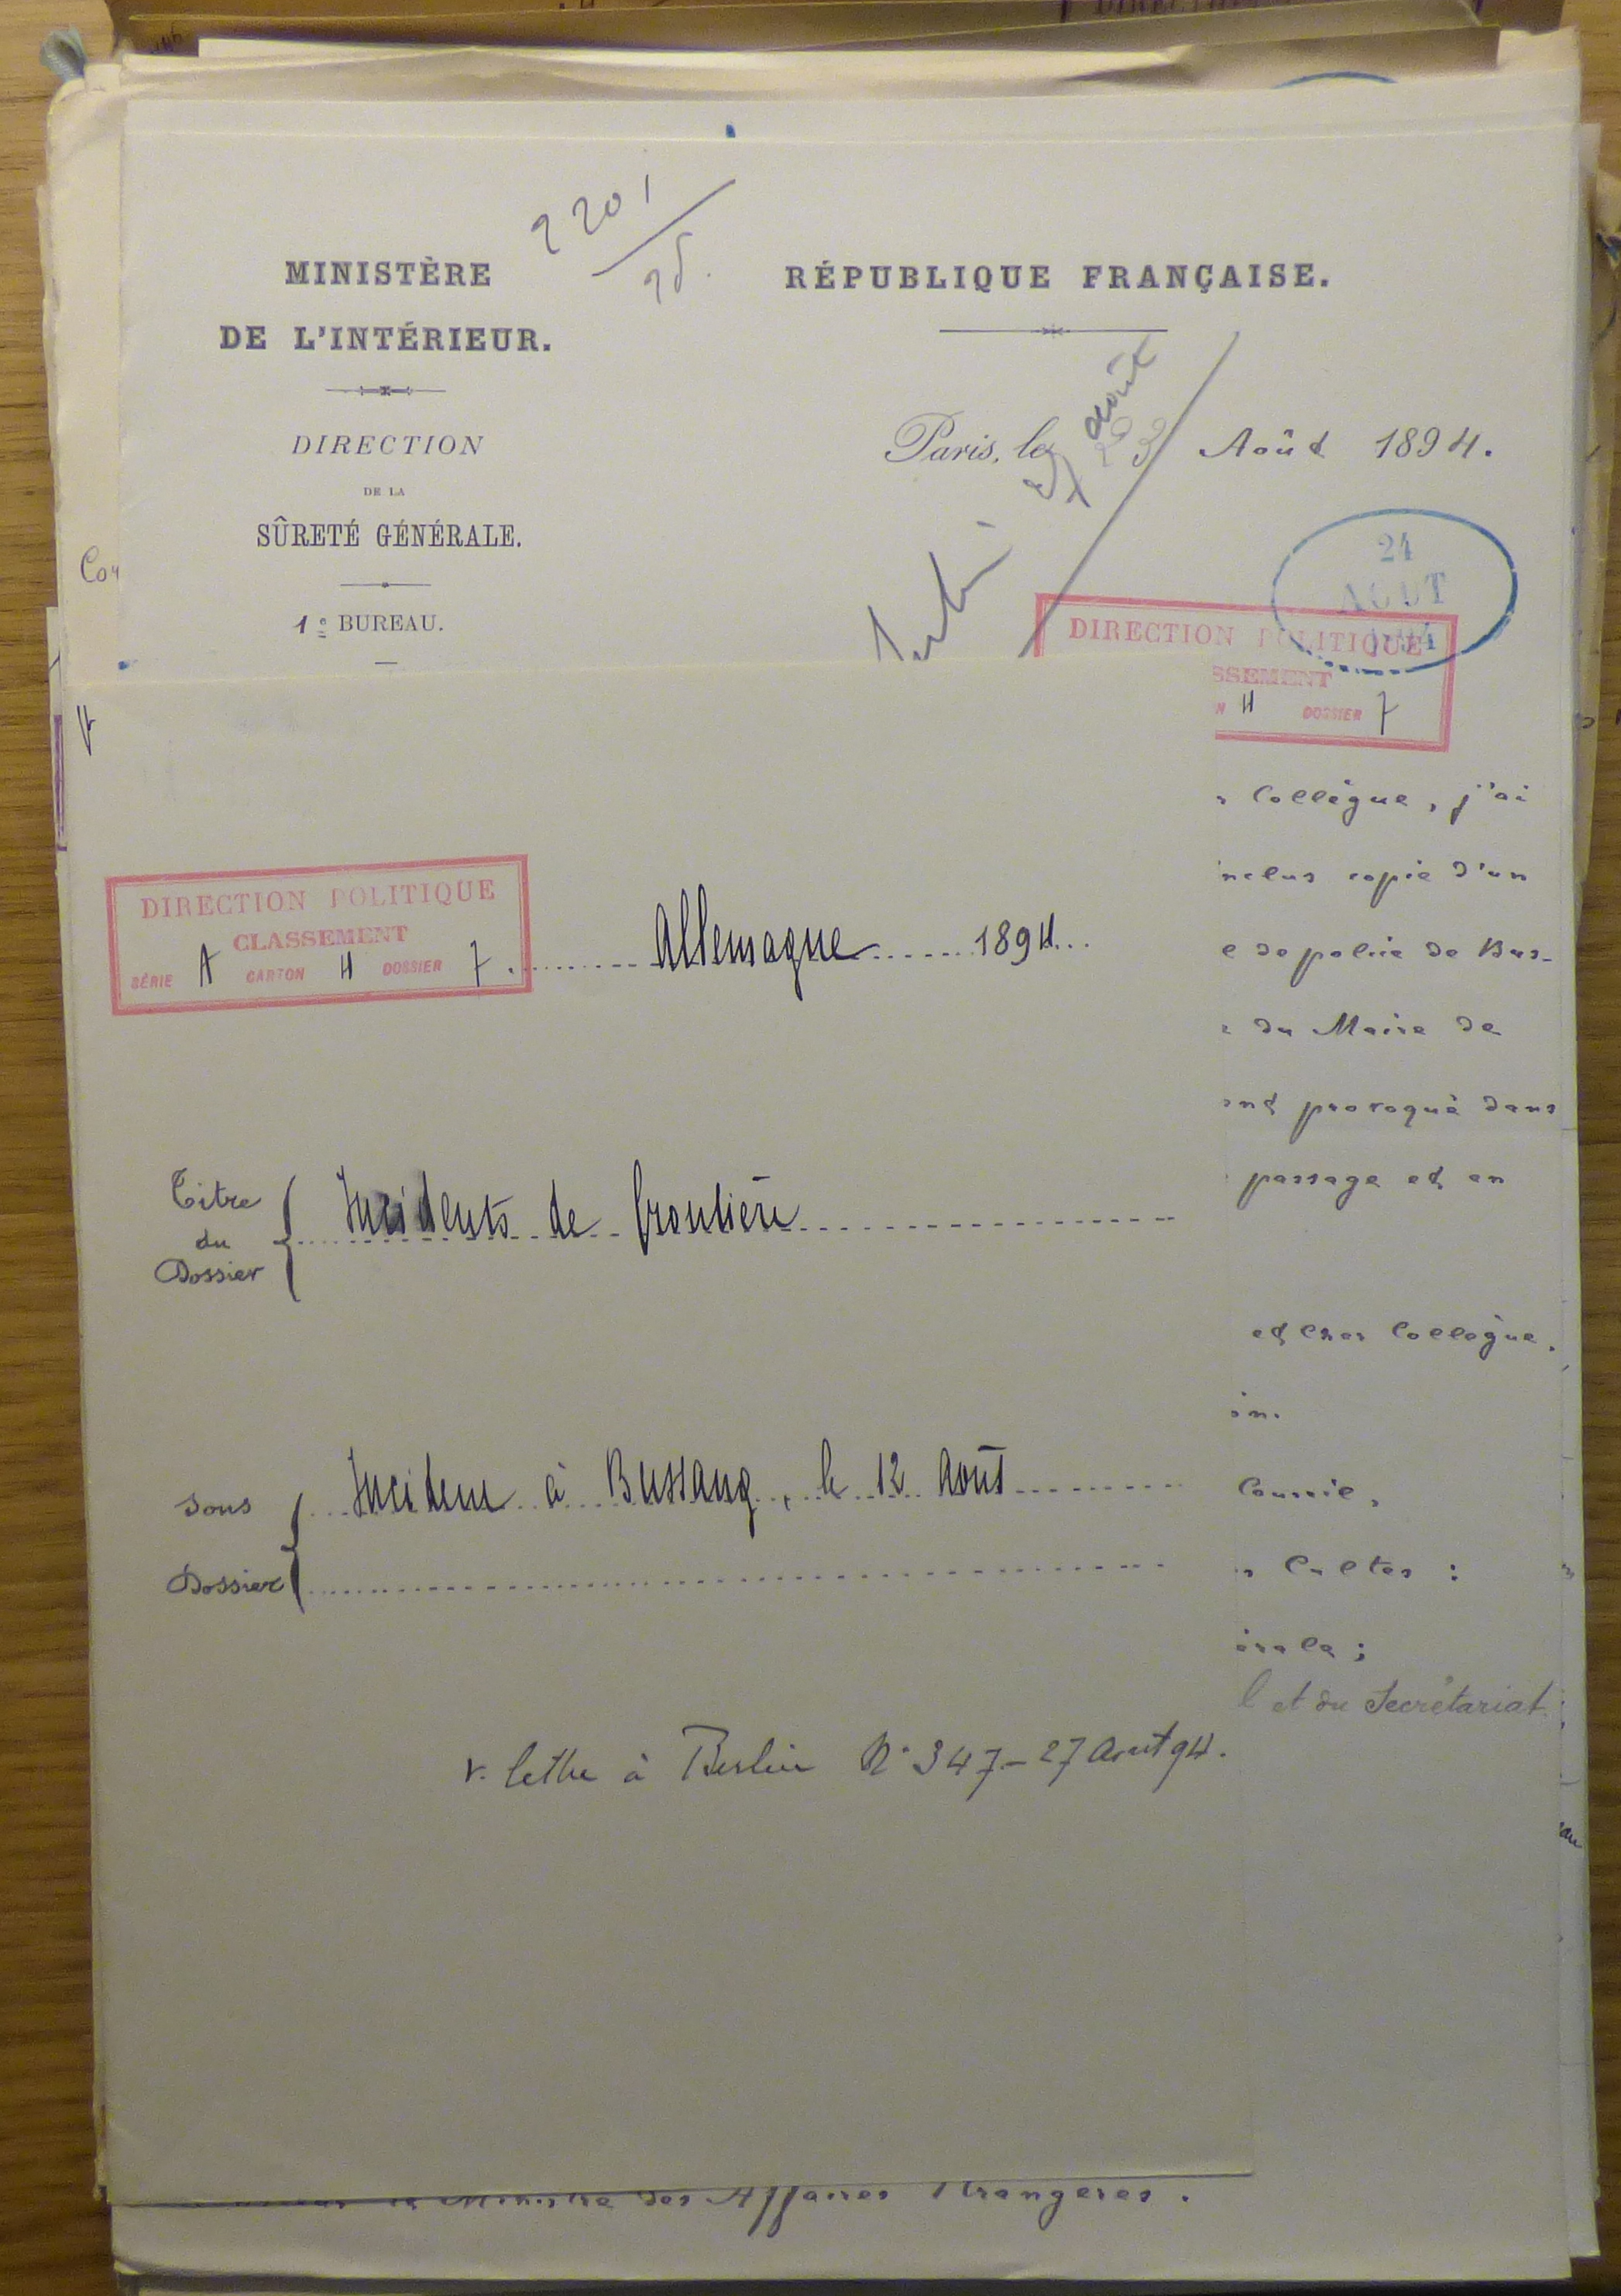 2201
25.
MINISTÈRE
DE L'INTÉRIEUR.
DIRECTION
DE LA
SÛRETÉ GÉNÉRALE.
1e BUREAU.
RÉPUBLIQUE FRANÇAISE.
Paris, le 23 Août 1894.
27 août
24
AOUT
DIRECTION POLITIQUE
SSEMENT
N 4 DOSSIER 7
Collègue, j'ai
nclus copie d'un
e de police de Bus-
du Maire de
ond provoqué dans
passage et en
et cher Collègue.
in.
Connie,
Cultes :
érale ;
l et du Secrétariat
DIRECTION POLITIQUE
CLASSEMENT
SÉRIE A CARTON 4 DOSSIER 7
Allemagne 1894
Titre
du
Dossier
Incidents de frontière
Sous
Dossier
Incident à Bussang, le 12 Août
v. lettre à Berlin No 347 - 27 Aout 94.
le Ministre des Affaires Etrangères.